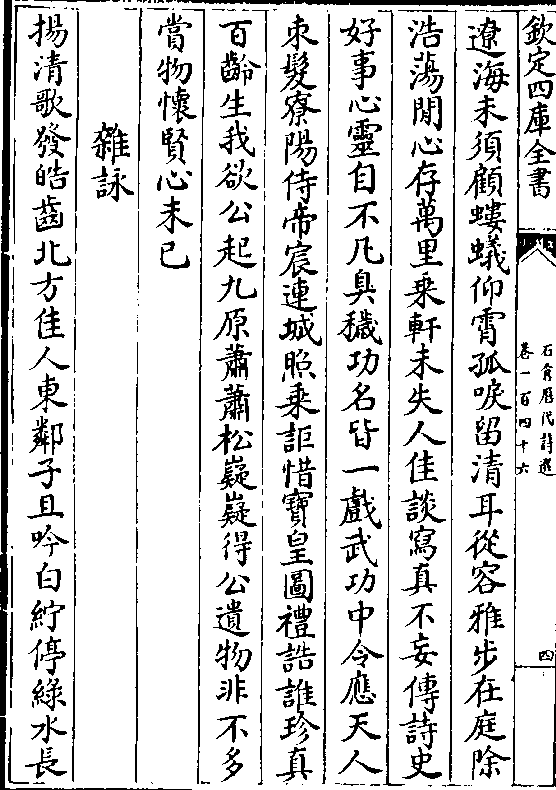 欽定四庫全書
石倉歷代詩選
卷一百四十六
四
遼海未須顧螻蟻仰霄孤唳留清耳從容雅步在庭除
浩蕩閒心存萬里乗軒未失人佳談寫真不妄傳詩史
好事心靈自不凡臭穢功名皆一戲武功中令應天人
束髮寮陽侍帝宸連城照乗詎惜寶皇圖禮誥誰珍真
百齡生我欲公起九原蕭蕭松嶷嶷得公遺物非不多
嘗物懷賢心未已
雜詠
揚清歌發皓齒北方佳人東鄰子且吟白紵停綠水長